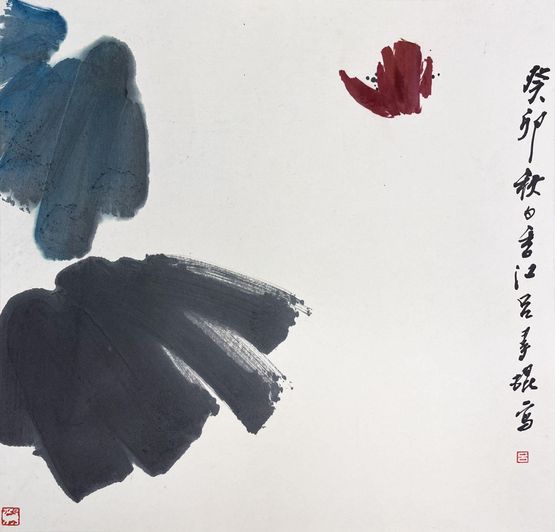 癸卯秋日香江呂壽琨寫